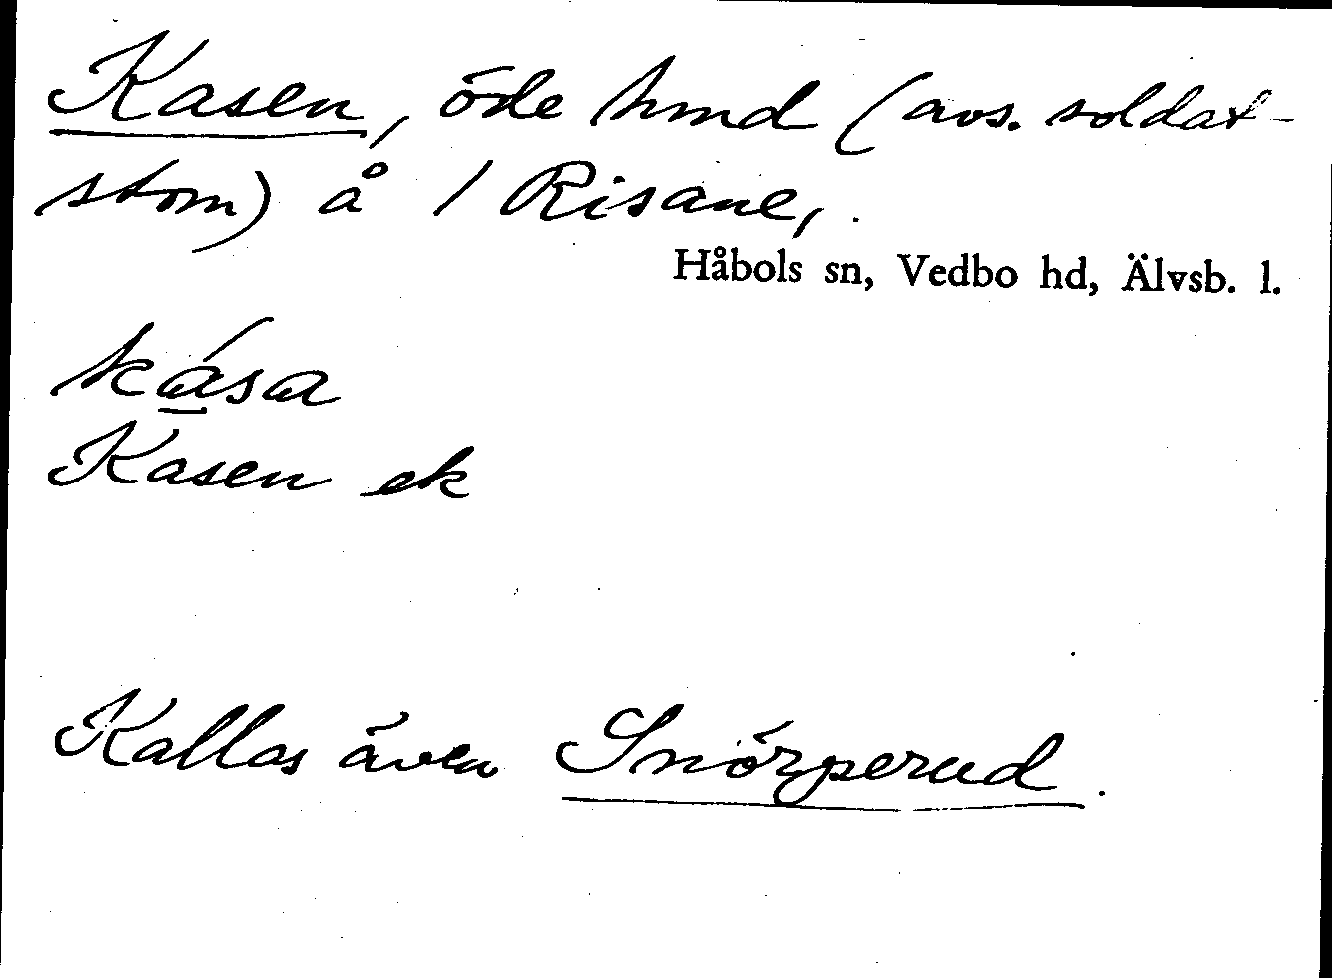 Kasen, öde hmd (avs. soldat-
stom) å 1 Risane,
Håbols sn, Vedbo hd, Älvsb. l.
kása
Kasen ek
Kallas även Snörperud.